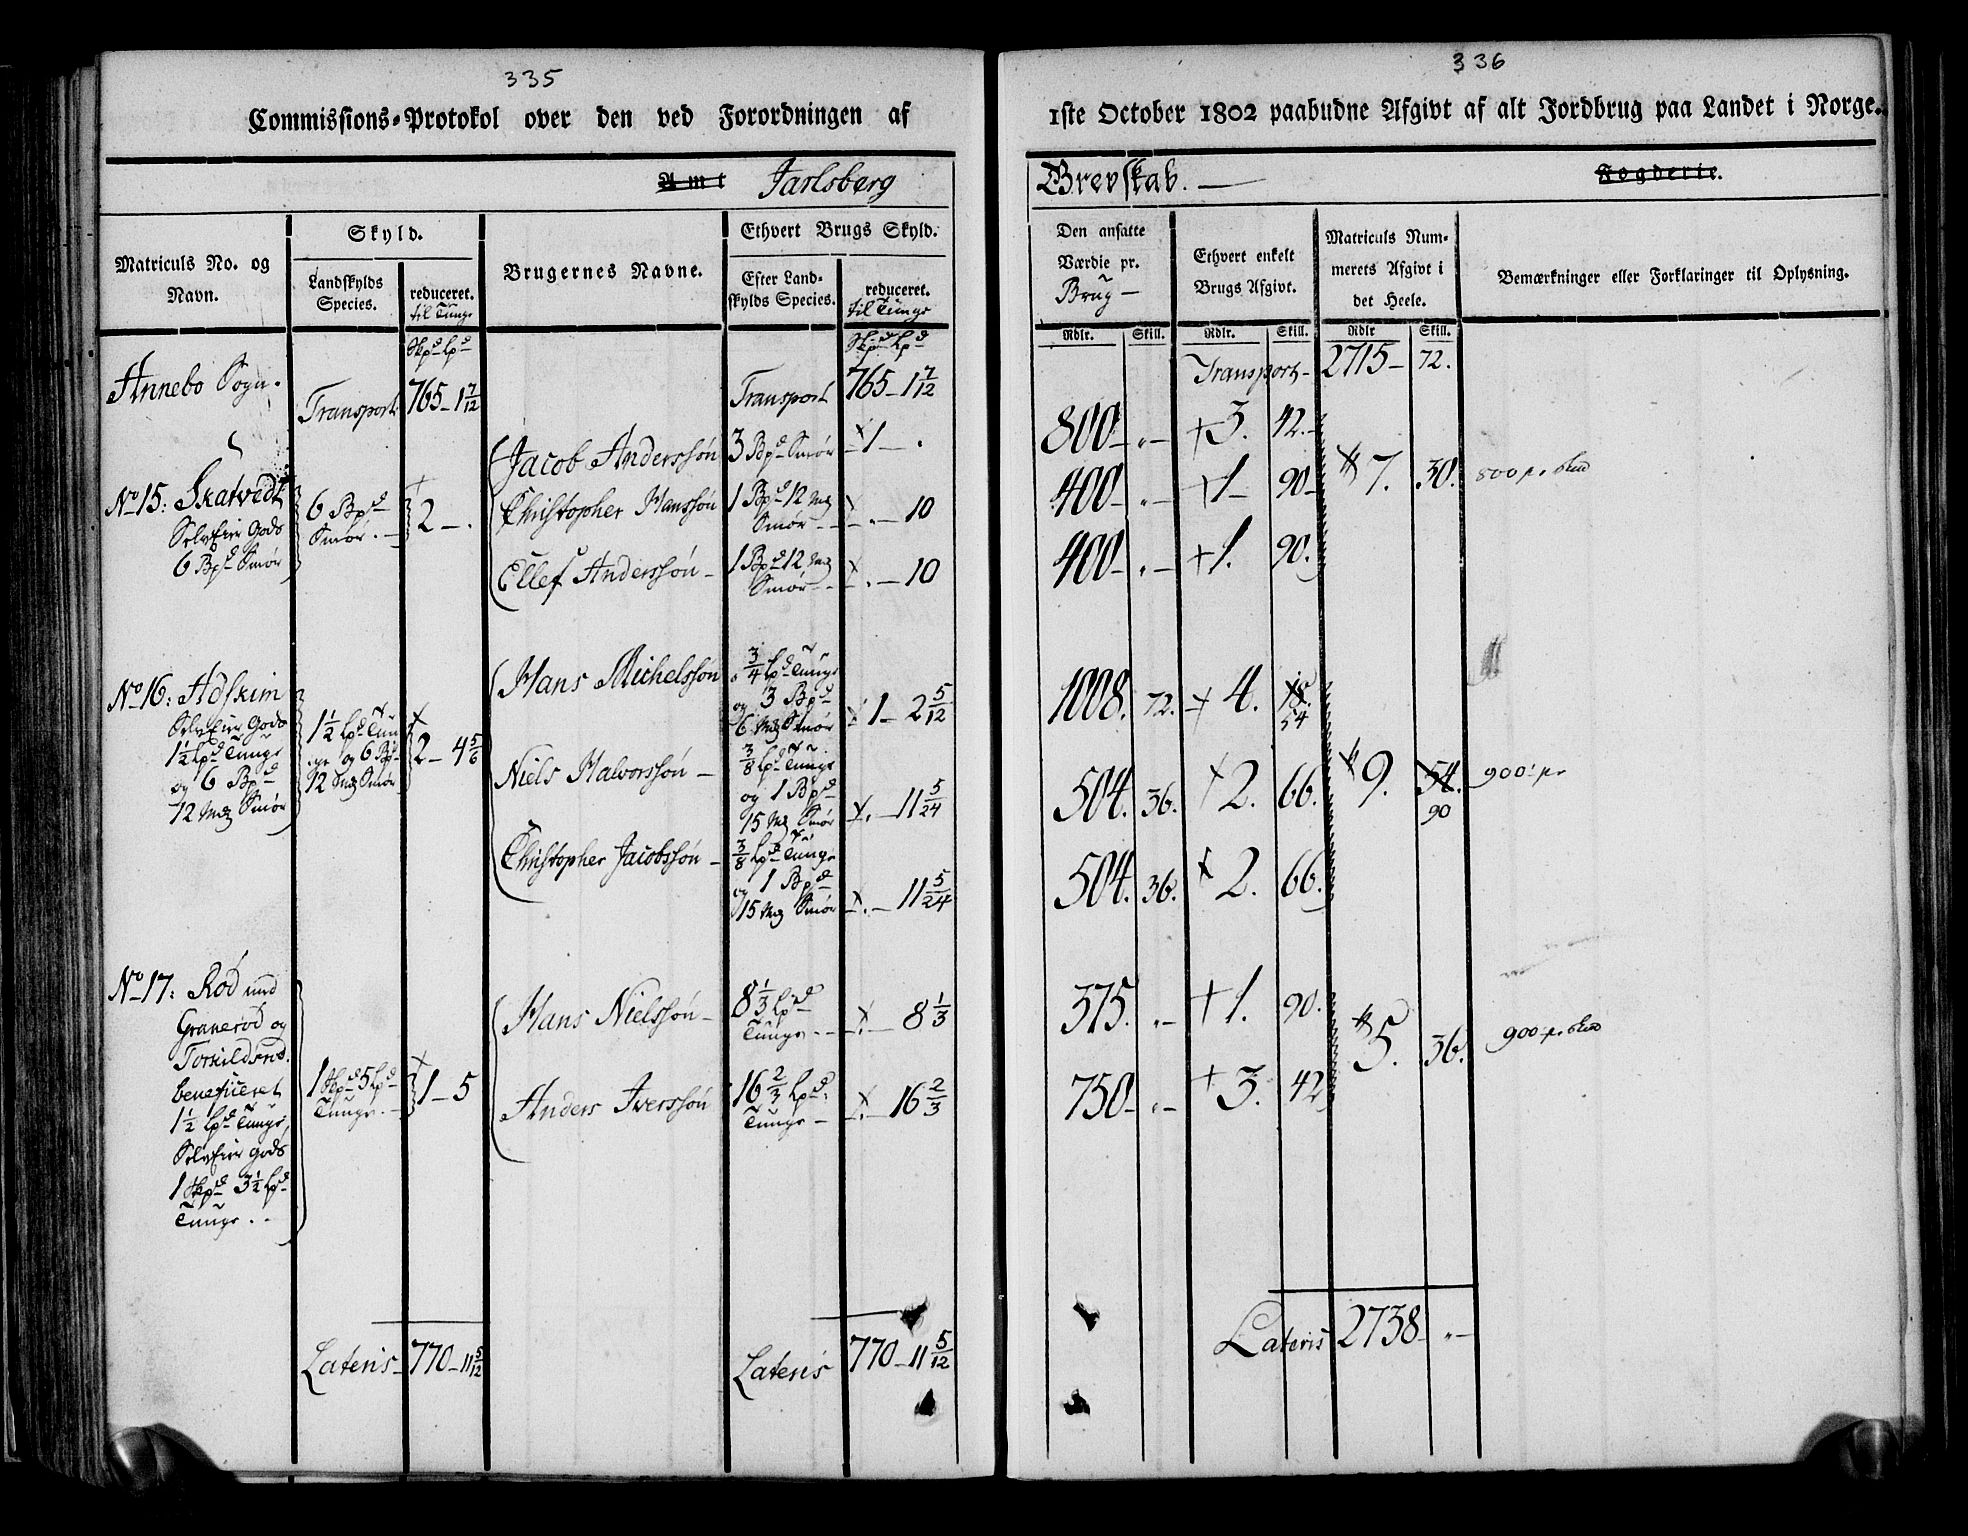 335
Commissions-Protokol over den ved Forordningen af
Amt Jarlsberg
Matriculs No. og Navn.
Skyld.
Landskylds Species.
reduceret. til Tunge
Brugernes Navne.
Ethvert Brugs Skyld.
Efter Landskylds Species.
reduceret. til Tunge
Skpd Lpd
Skpd Lpd
Annebo Sogn.
Transport 765 - 1 7/12
Transport 765 - 1 7/12
No 15: Skatvedt
Selveier Gods
6 Bpd Smør
6 Bpd
Smør. -
2 - .
Jacob Anderssøn 3 Bpd Smør 1 - .
Christopher Hanssøn 1 Bpd 12 Mk
Smør - . - 10
Ellef Anderssøn - 1 Bpd 12 Mk
Smør - . - 10
No 16: Adskim
Selveier Gods
1½ Lpd Tunge
og 6 Bpd
12 Mk Smør
1½ Lpd Tun
ge og 6 Bp
12 Mk Smør
2 - 4 5/6
Hans Michelssøn
3/4 Lpd Tunge
og 3 Bpd
6 Mk Smør
1 - 2 5/12
Niels Halvorssøn -
3/8 Lpd Tunge
og 1 Bpd
15 Mk Smør
. - 11 5/24
Christopher Jacobssøn -
3/8 Lpd Tunge
og 1 Bpd
15 Mk Smør
. - 11 5/24
No 17: Rød und
Granerød og
Torkildsrød.
beneficeret
1½ Lpd Tunge,
Selveier Gods
1 Skpd 3½ Lpd
Tunge . .
1 Skpd 5 Lpd
Tunge. -
1 - 5
Hans Nielssøn -
8 1/3 Lpd
Tunge - -
. - 8 1/3
Anders Iverssøn
16 2/3 Lpd.
Tunge -
. - 16 2/3
Lateris - 770 - 11 5/12
Lateris 770 - 11 5/12
336
1ste October 1802 paabudne Afgivt af alt Jordbrug paa Landet i Norge.
Grevskab. - Fogderie.
Den ansatte Værdie pr. Brug -
Ethvert enkelt Brugs Afgivt.
Matriculs Nummerets Afgivt i det Heele.
Bemærkninger eller Forklaringer til Oplysning.
Rdlr. Skill. Rdlr. Skill. Rdlr Skill.
Transport - 2715 - 72.
800 - „ - + 3. 42. -
400 - „ - + 1 - 90 - 7. 30. 800 pr.
400 - „ - + 1. 90.
1008. 72. + 4. 18.
54
504. 36. + 2. 66. 9. 54. 900 pr
90
504. 36. x 2. 66.
375. „ - + 1. 90.
5. 36. 900 pr.
750 - „ - + 3. 42
Lateris 2738 - „ -